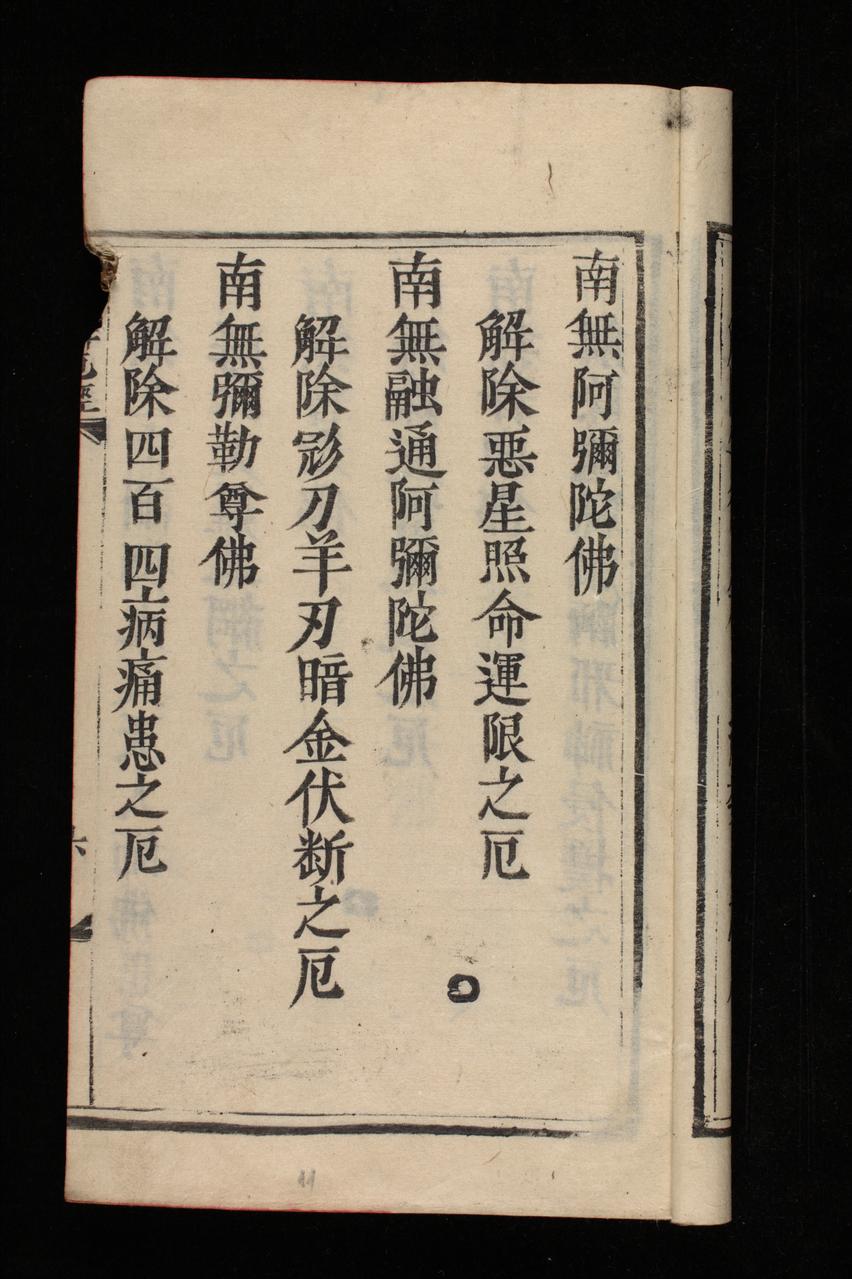 南無阿彌陀佛
解除惡星照命運限之厄
南無融通阿彌陀佛
解除彩刀羊刃暗金伏断之厄
南無彌勒尊佛
解除四百四病痛患之厄
厄經
六
11